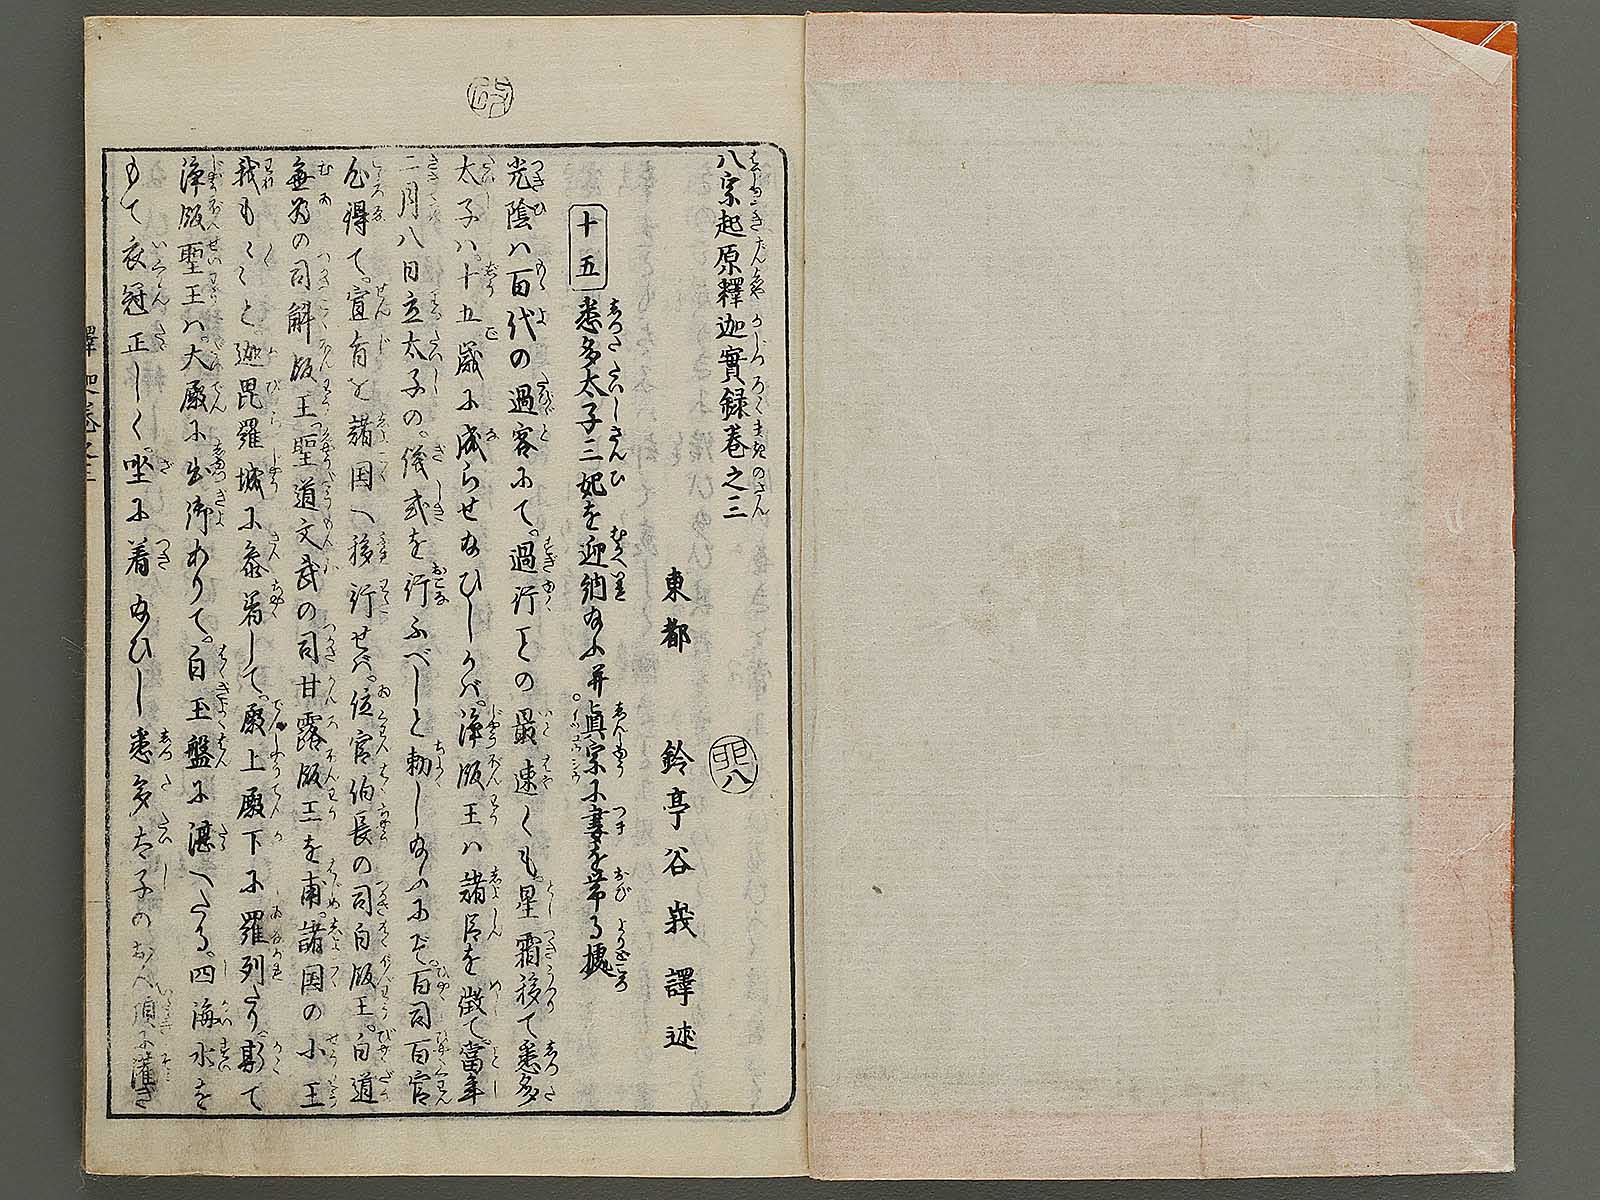 八宗起原釋迦實録巻之三
東都 鈴亭谷峩譯述
十五 悉多太子三妃を迎納給ふ并眞宗に妻を帯る據
光陰ハ百代の過客にて。過行ことの最速くも。星霜移て悉多
太子ハ。十五歳に成らせ給ひしかバ。淨飯王ハ諸臣を徴て。當年
二月八日立太子の。儀式を行ふべしと勅し給ふにぞ。百司百官
心得て。宣旨を諸国へ移行せバ。位官伯長の司白飯王。白道
無為の司斛飯王。聖道文武の司甘露飯王を甫。諸国の小王
我も〳〵と迦毘羅城に参着して。殿上殿下に羅列たり。斯て
淨飯聖王ハ。大殿に出御ありて。白玉盤に湛へたる。四海水を
もて衣冠正しく。坐に着給ひし悉多太子の 頂に灌き
釋迦巻之三
八